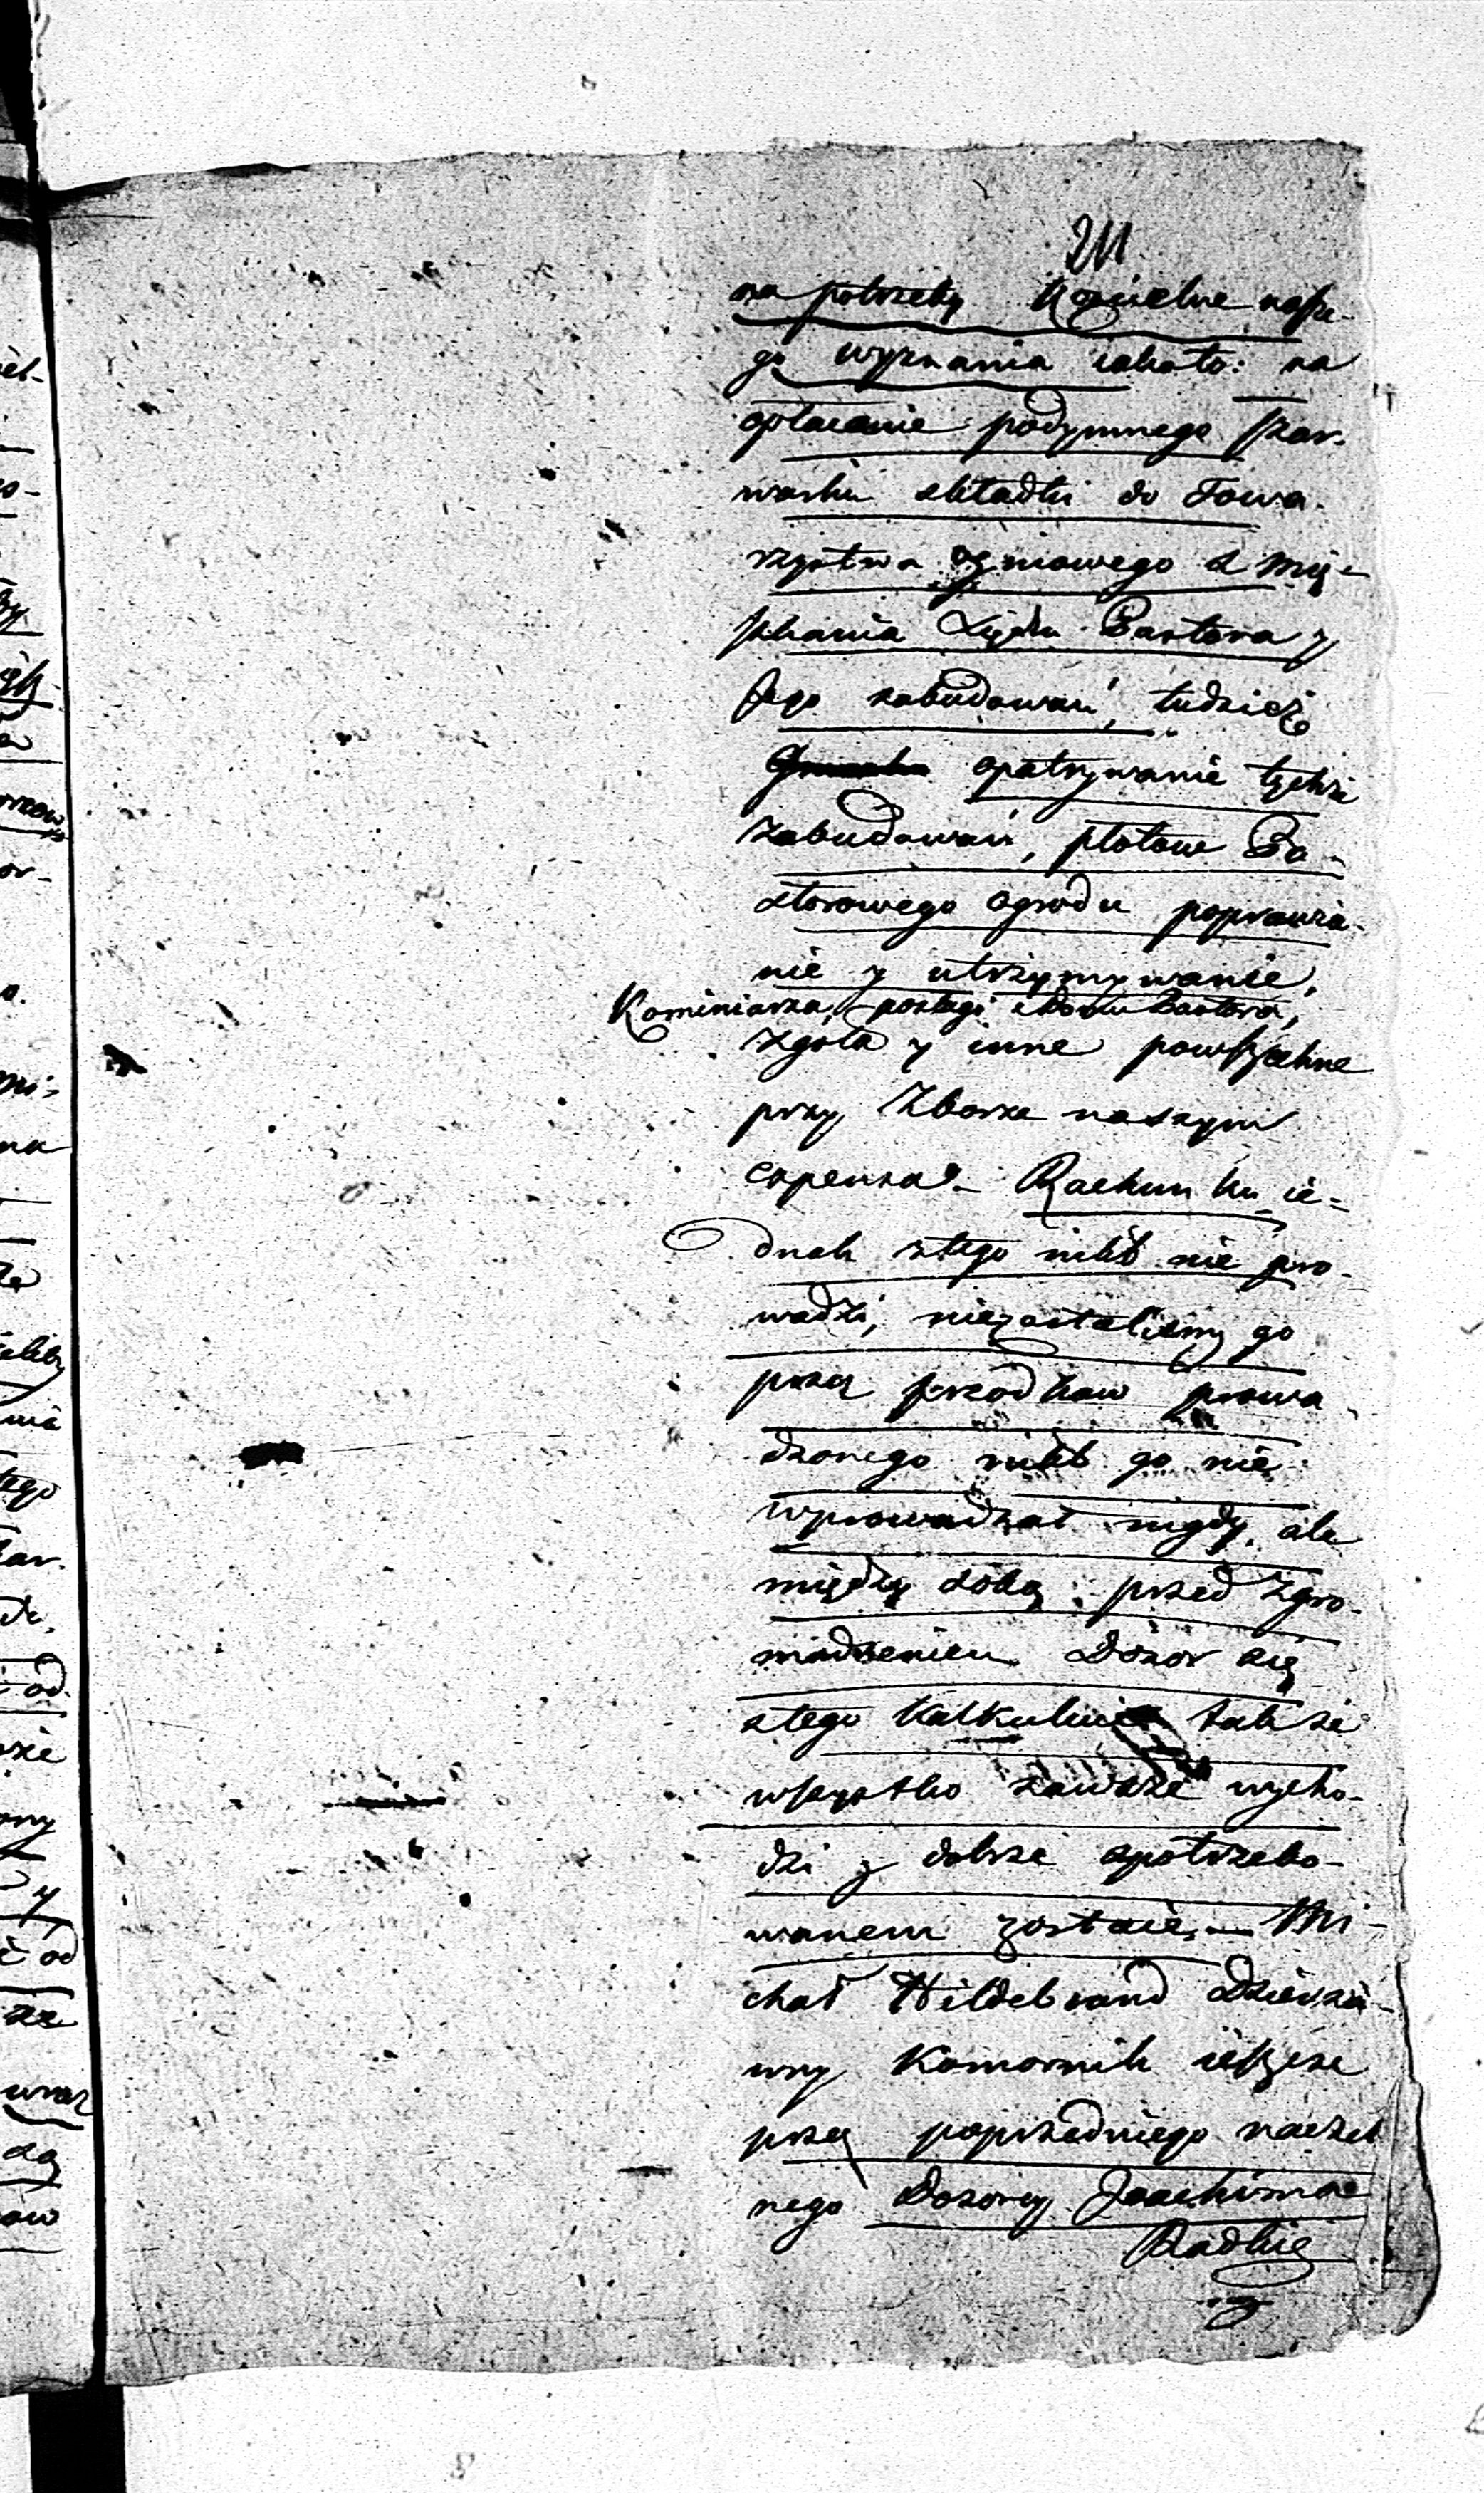 211
na potrzeby Kościelne nasze-
go wyznania iakoto: na
opłacenie podymnego szar-
warku składki do Towa-
rzystwa ogniowego z mię-
szkania Xiędza Pastora y
Jego zabudowań, tudzież
opatrywanie tychże
zabudowań, płotow Pa-
storowego ogrodu poprawia-
nie y utrzymywanie,
Kominiarza, posługi Pastora,
zgoła y inne powszechne
przy Zborze naszym
expensa. Rachunku ie-
dnak z tego nikt nie pro-
wadzi, niezostaliśmy go
przez przodkow prowa-
dzonego nikt go nie
wprowadzał nigdy, ale
między sobą przed zgro-
madzeniem Dozor się
z tego Kalkuluie tak że
wszystko zawsze wycho-
dzi y dobrze spotrzebo-
wanem zostaie. — Mi-
chał Hildebrand Dzierża-
wny Komornik ieszcze
przez poprzedniego naczel-
nego Dozorcy Joachima
Radkie